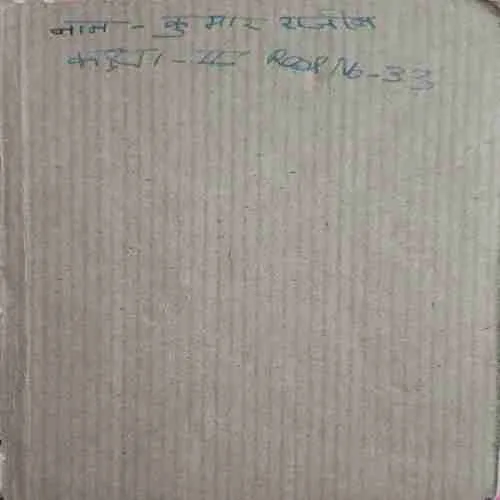 नाम - कुमार राजीव
कक्षा - II Roll No - 33